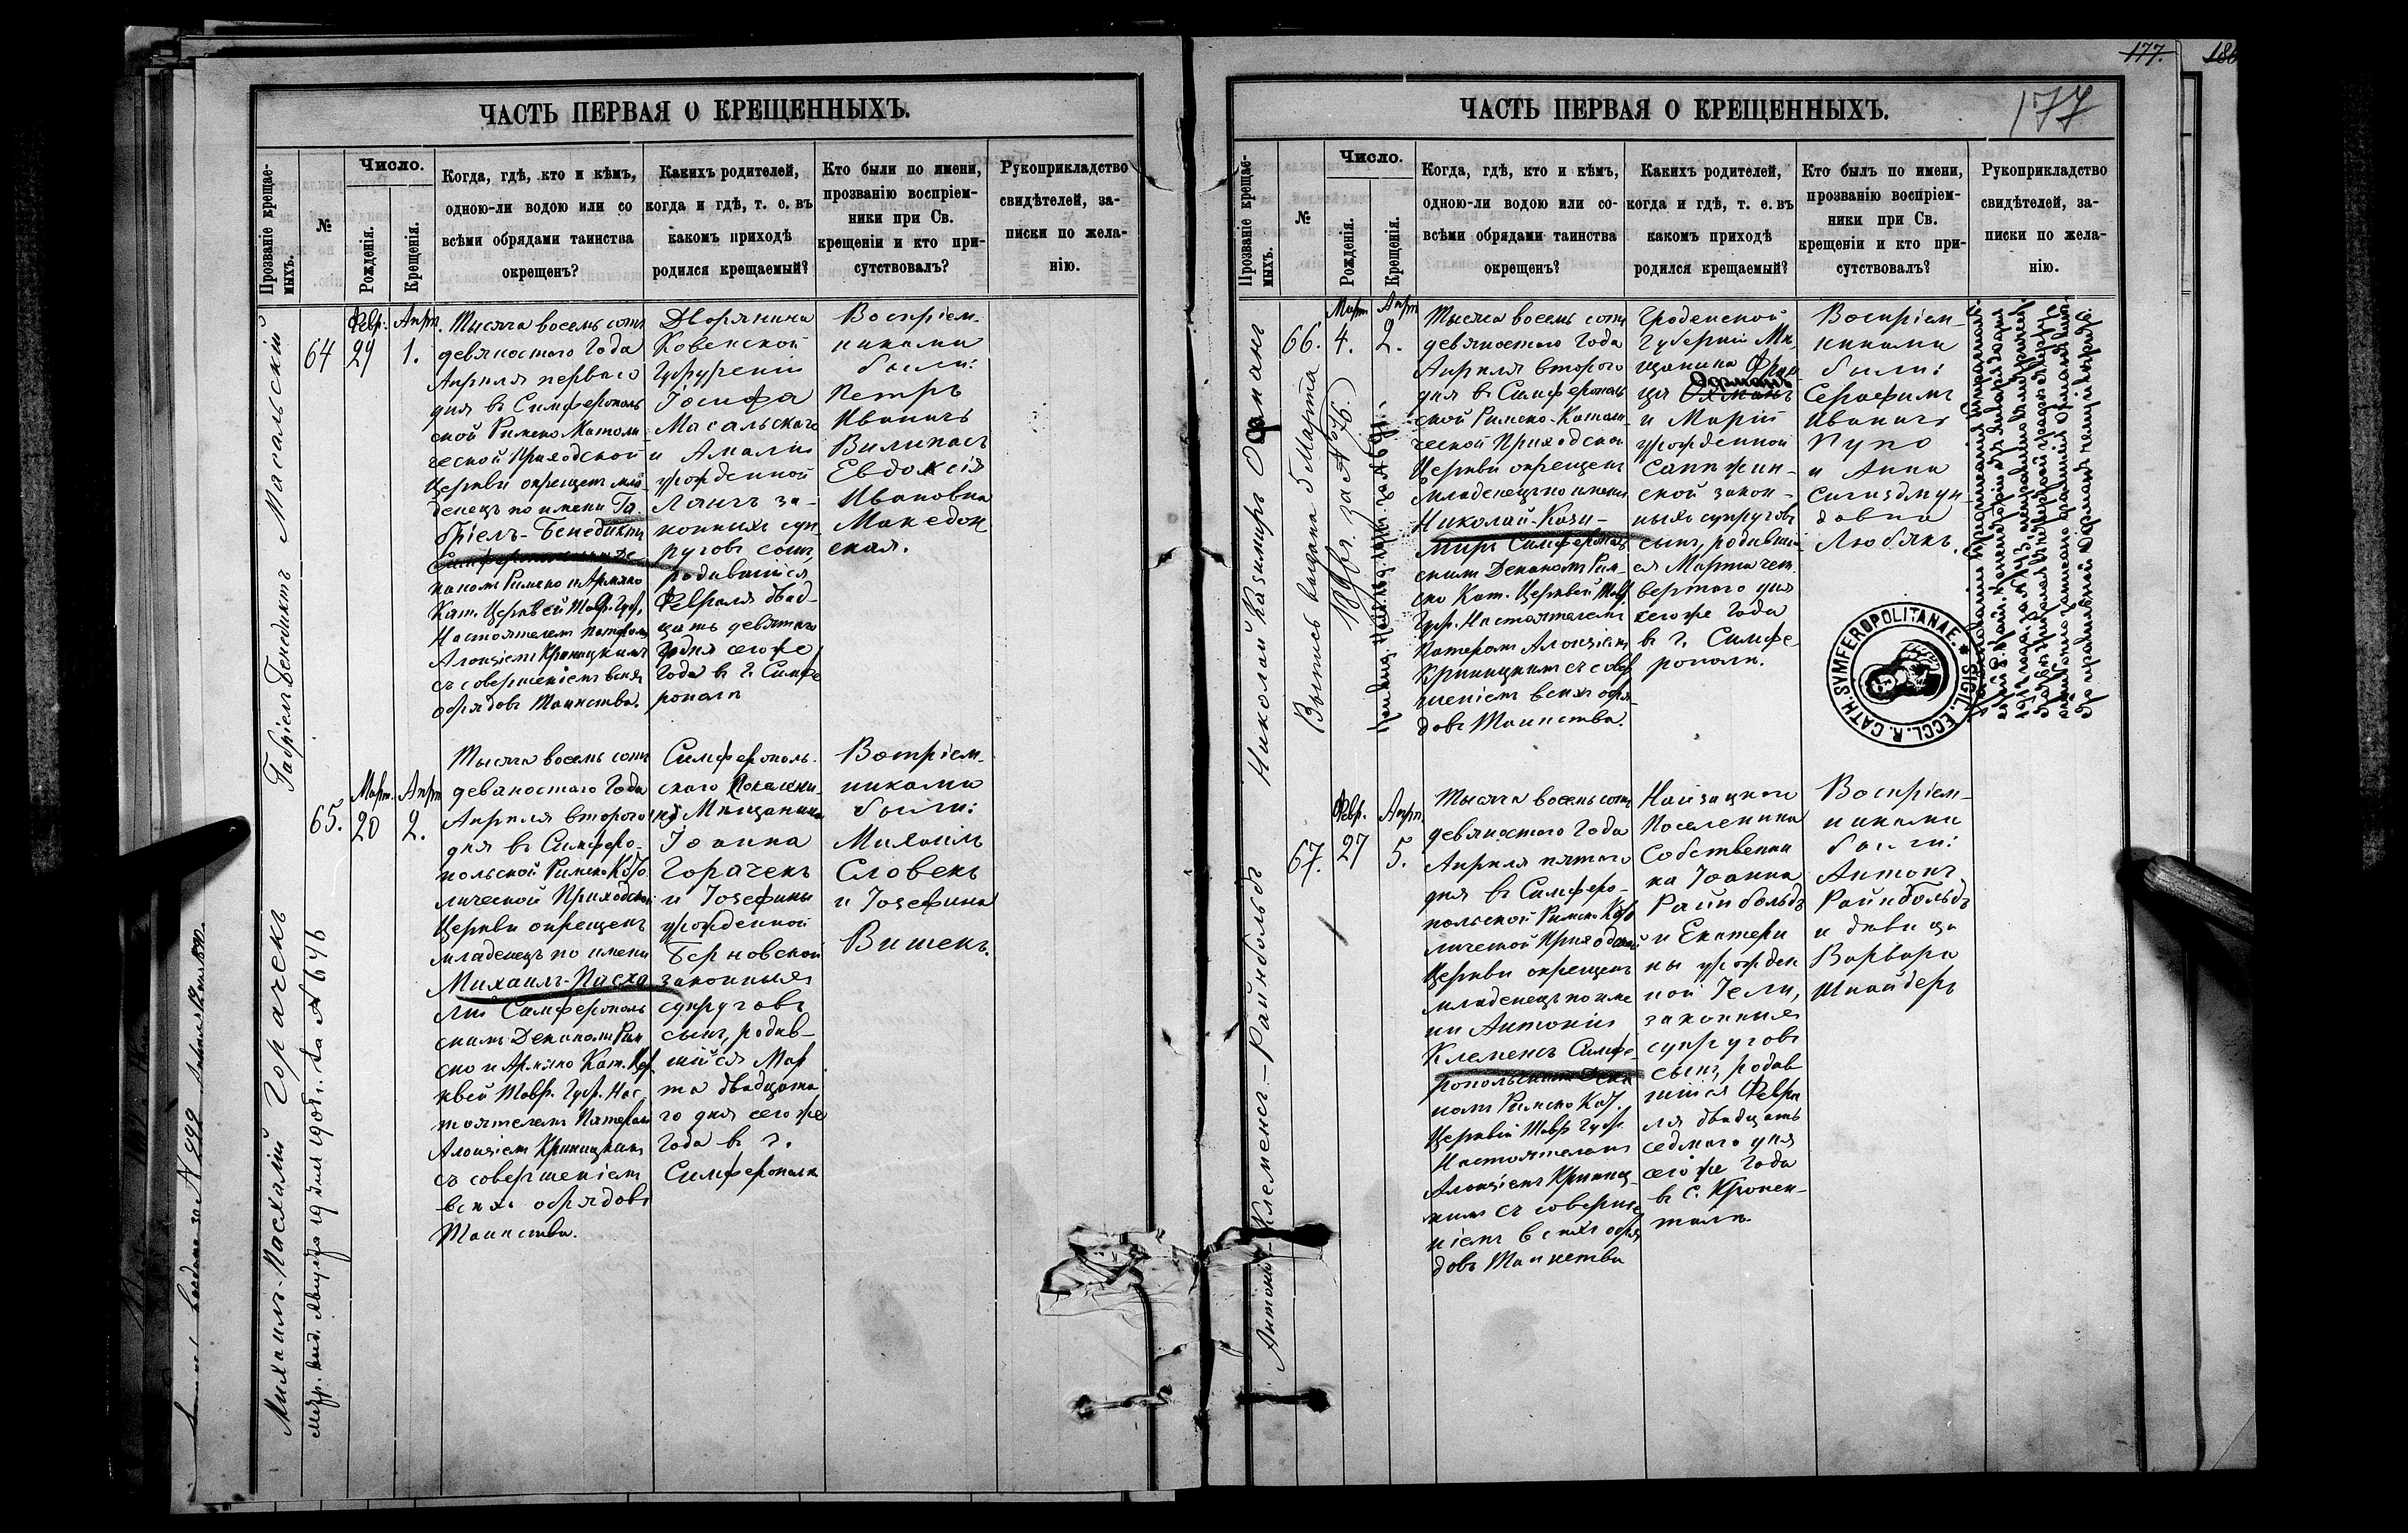 177.
180
177
ЧАСТЬ ПЕРВАЯ О КРЕЩЕННЫХЪ.
Прозваніе крещае-
мыхъ.
№
Число.
Рожденія.
Крещенія.
Когда, гдѣ, кто и кѣмъ,
одною-ли водою или со
всѣми обрядами таинства
окрещенъ?
Какихъ родителей,
когда и гдѣ, т. е. въ
какомъ приходѣ
родился крещаемый?
Кто были по имени,
прозванію воспріем-
ники при Св.
крещеніи и кто при-
сутствовалъ?
Рукоприкладство
свидѣтелей, за-
писки по жела-
нію.
Габріель Бенедиктъ Масальскій
64
Февр.
29
Апр.
1.
Тысяча восемь сотъ
девяностаго Года
Апрѣля перваго
дня въ Симферополь
ской Римско Католи
ческой Приходской
Церкви окрещенъ мла
денецъ по имени Га
бріелъ-Бенедиктъ
Симферопольскимъ Де
каномъ Римско и Армяно
Кат. Церквей Тавр. Губ.
Настоятелемъ Патеромъ
Алоизіемъ Криницкимъ
съ совершеніемъ всѣхъ
обрядовъ Таинства.
Дворянина
Ковенской
Губерніи
Іосифа
Масальскаго
и Амаліи
урожденной
Лангъ за-
конныхъ суп
руговъ сынъ,
родившійся
Февраля двад-
цать девятаго
дня сегоже
Года въ г. Симфе
рополѣ
Воспріем-
никами
были:
Петръ
Иваничъ
Евдоксія
Ивановна
Македон
ская.
Михаилъ-Пасхалій Горачекъ
65.
Март.
20
Апр.
2.
Тысяча восемь сотъ
девяностаго Года
Апрѣля втораго
дня въ Симферо-
польской Римско Като
лической Приходской
Церкви окрещенъ
младенецъ по имени
Михаилъ-Пасха
лій Симферополь
скимъ Деканомъ Рим
ско и Армяно Кат. Цер
квей Тавр. Губ. Нас-
тоятелемъ Патеромъ
Алоизіемъ Криницкимъ
съ совершеніемъ
всѣхъ обрядовъ
Таинства.
Симферополь-
скаго
Мѣщанина
Іоанна
Горачекъ
и Іозефины
урожденной
Берновской
законныхъ
супруговъ
сынъ, родив-
шійся Мар
та двадцата
го дня сегоже
Года въ г.
Симферополѣ
Воспріем-
никами
были:
Михаилъ
Словекъ
и Іозефина
Вишекъ.
ЧАСТЬ ПЕРВАЯ О КРЕЩЕННЫХЪ.
Прозваніе крещае-
мыхъ.
№
Число.
Рожденія.
Крещенія.
Когда, гдѣ, кто и кѣмъ,
одною-ли водою или со-
всѣми обрядами таинства
окрещенъ?
Какихъ родителей,
когда и гдѣ, т. е. въ
какомъ приходѣ
родился крещаемый?
Кто былъ по имени,
прозванію воспріем-
ники при Св.
крещеніи и кто при-
сутствовалъ?
Рукоприкладство
свидѣтелей, за-
писки по жела-
нію.
Николай Казимиръ
Выпись выдана 5 Марта
66.
Март
4.
Апр
2.
Тысяча восемь сотъ
девяностаго Года
Апрѣля втораго
дня въ Симферополь
ской Римско-Католи
ческой Приходской
Церкви окрещенъ
младенецъ по имени
Николай-Кази-
миръ Симферополь
скимъ Деканомъ Рим-
ско Кат. Церквей Тавр
Губ. Настоятелемъ
Патеромъ Алоизіемъ
Криницкимъ съ совер
шеніемъ всѣхъ обря
довъ Таинства.
Гроденской
Губерніи Мѣ
щанина Фран
ца
и Маріи
урожденной
ской закон-
ныхъ супруговъ
сынъ, родившій
ся Марта чет
вертаго дня
сегоже Года
въ г. Симфе
рополѣ.
Воспріем-
никами
были:
Серафимъ
Иваничъ
Пупо
и Анна
Сигизмун
довна
Любякъ.
SIGIL. ECCL. R. CATH. SYMFEROPOLITANAE.
Антоній-Клеменсъ-Райнбольдъ
67.
Февр.
27
Апр.
5.
Тысяча восемь сотъ
девяностаго Года
Апрѣля пятаго
дня въ Симферо-
польской Римско Като
лической Приходской
Церкви окрещенъ
младенецъ по име
ни Антоній
Клеменсъ Симфе-
ропольскимъ Дека
номъ Римско Кат.
Церквей Тавр Губ.
Настоятелемъ
Алоизіемъ Криниц-
кимъ съ соверше
ніемъ всѣхъ обря
довъ Таинства
Найзацкаго
Поселенина
Собственни
ка Іоанна
Райнбольдъ
и Екатери
ны урожден
ной Іели,
законныхъ
супруговъ
сынъ, родив
шійся Февра
ля двадцать
седмаго дня
сегоже Года
въ с. Кронен-
талѣ.
Воспріем-
никами
были:
Антонъ
Райнбольдъ
и дѣвица
Варвара
Шнайдеръ